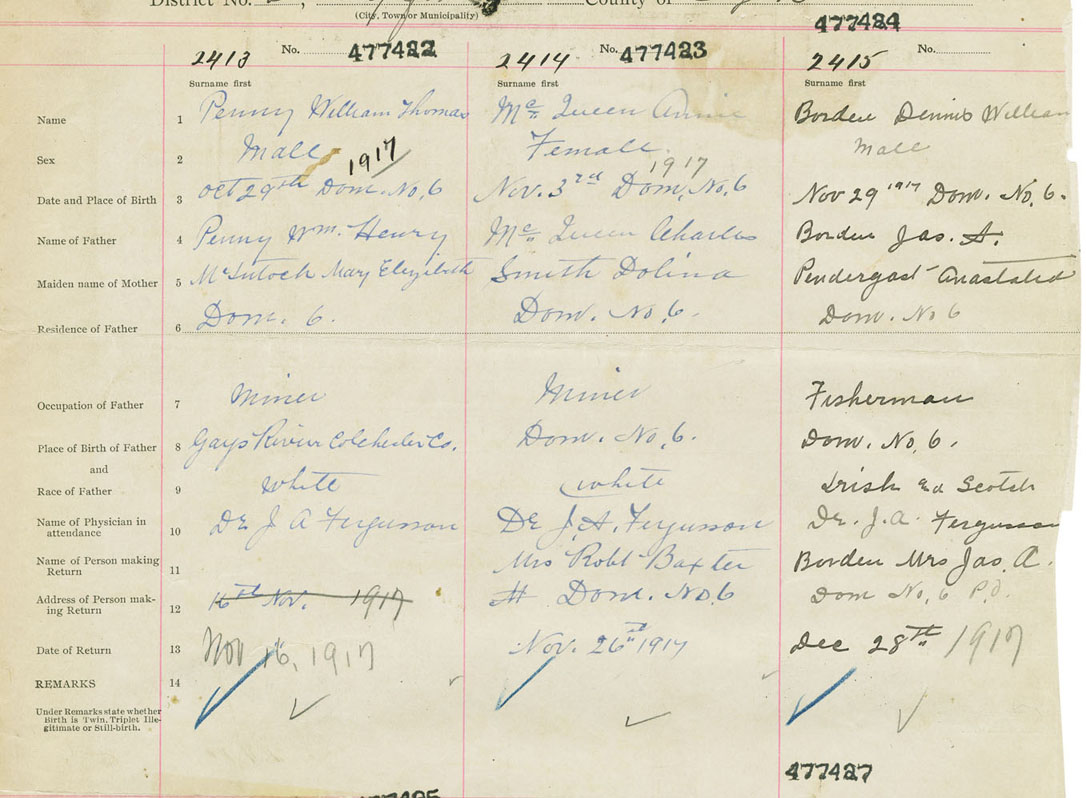 District No. County of
(City, Town or Municipality)
477424
2413 No. 477422 2414 No. 477423 2415 No.
Surname first Surname first Surname first
Name 1 Penny William Thomas Mc Queen Annie Borden Dennis William
Sex 2 Male Female Male
1917 1917
Date and Place of Birth 3 Oct 29th Dom. No. 6 Nov. 3rd Dom. No. 6 Nov 29 1917 Dom. No. 6.
Name of Father 4 Penny Wm. Henry Mc Queen Charles Borden Jas. A.
Maiden name of Mother 5 McIntosh Mary Elizibeth Smith Dolina Pendergast
Residence of Father 6 Dom. 6. Dom. No. 6. Dom. No 6
Occupation of Father 7 Miner Miner Fisherman
Place of Birth of Father 8 Gays River Colchester Co. Dom. No. 6. Dom. No. 6.
and
Race of Father 9 White White Irish Scotch
Name of Physician in
attendance 10 Dr J A Fergusson Dr J. A. Fergusson Dr. J. A. Fergusson
Name of Person making
Return 11 Mrs Robt Baxter Borden Mrs Jas. A.
Address of Person mak-
ing Return 12 16th Nov. 1917 Dom. No. 6 Dom No. 6
Date of Return 13 Nov 16, 1917 Nov. 26th 1917 Dec 28th 1917
REMARKS 14
Under Remarks state whether
Birth is Twin, Triplet Ille-
gitimate or Still-birth.
477427